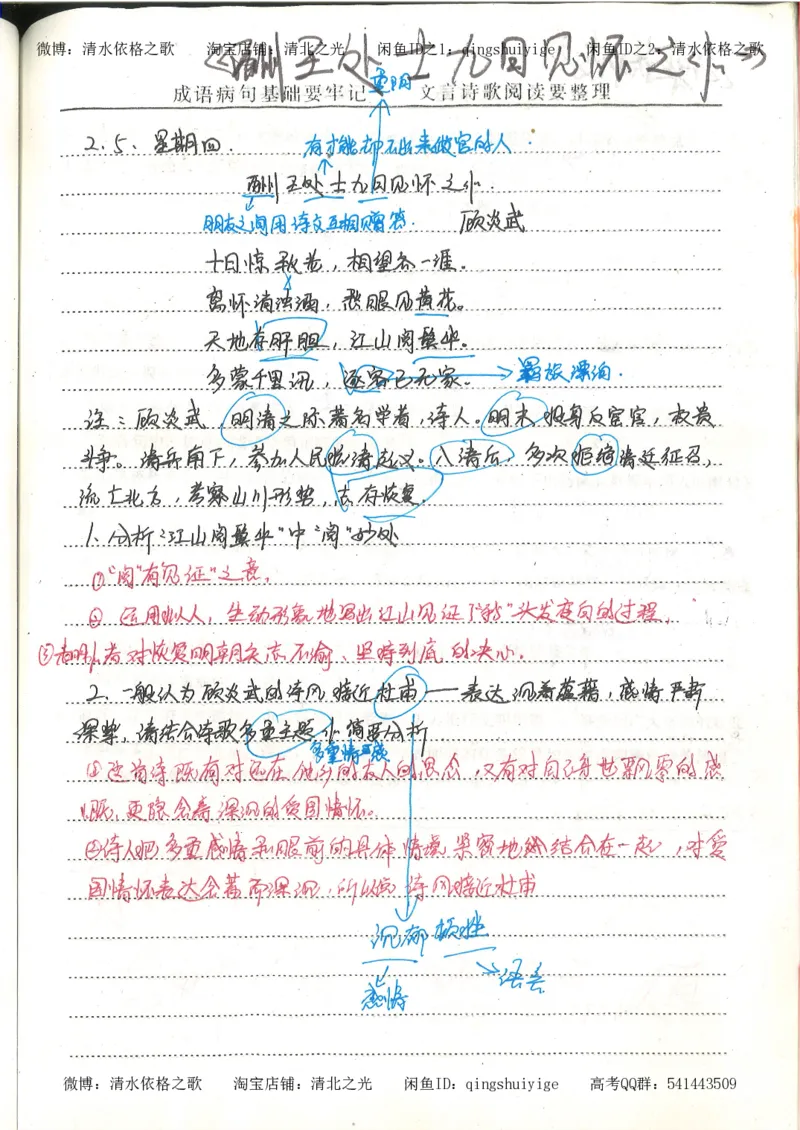 微博：清水依格之歌 淘宝店铺：清北之光 闲鱼ID之1：qingshuiyige 闲鱼ID之2：清水依格之歌
《酬王处士九日见怀之作》
重阳
成语病句基础要牢记 文言诗歌阅读要整理
2.5、星期四. 有才能却不出来做官的人.
酬王处士九日见怀之作.
朋友之间用诗文互相赠答. 顾炎武
十日惊秋老，相望各一涯。
离怀消浊酒，愁眼见黄花。
天地存肝胆，江山阅鬓华。
多蒙千里讯，逐客已无家。 羁旅漂泊.
注：顾炎武，明清之际著名学者，诗人。明末投身反宦官，权贵
斗争。清兵南下，参加人民抗清起义。入清后，多次拒绝清廷征召，
流亡北方，考察山川形势，志存恢复.
1.分析"江山阅鬓华"中"阅"妙处
①"阅"有"见证"之意。
② 运用拟人，生动形象地写出江山见证了"我"头发变白的过程.
③表明作者对恢复明朝矢志不渝、坚持到底的决心.
2.一般认为顾炎武的诗风接近杜甫——表达沉着蕴藉，感情严肃
深挚，请结合诗歌多重主题作简要分析
多重情感
①这首诗既有对远在他乡的友人的思念，又有对自己身世飘零的感
慨，更隐含着深沉的爱国情怀。
②诗人把多重感情和眼前的具体情境紧密地结合在一起，对爱
国情怀表达含蓄而深沉，所以说诗风接近杜甫
沉郁顿挫
语言
感情
微博：清水依格之歌 淘宝店铺：清北之光 闲鱼ID：qingshuiyige 高考QQ群：541443509